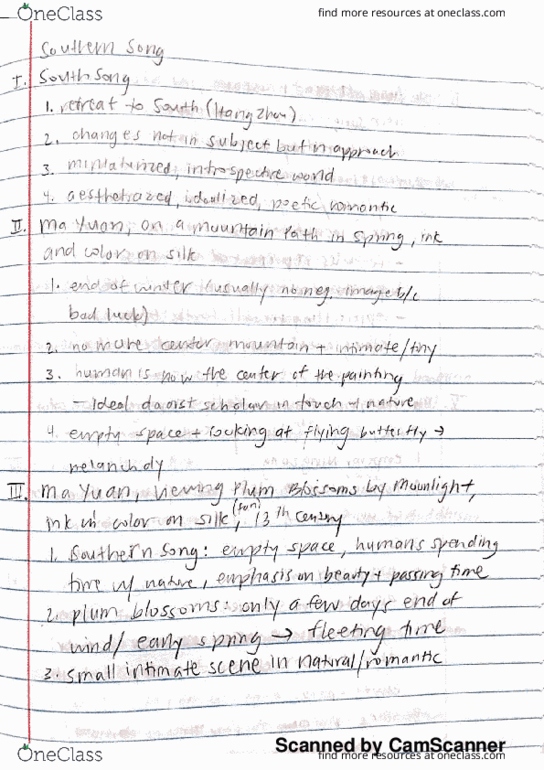 OneClass
find more resources at oneclass.com
Southern Song
I. South Song
1. retreat to South (HangZhou)
2. changes not in subject but in approach
3. miniaturized, introspective world
4. aestheticized, idealized, poetic, romantic
II. Ma Yuan, on a mountain Path in Spring, ink
and color on silk
1. end of winter (usually no neg. image b/c
bad luck)
2. no more center mountain + intimate/tiny
3. human is now the center of the painting
- Ideal daoist scholar in touch + nature
4. empty space + looking at flying butterfly →
melancholy
III. Ma Yuan, Viewing Plum Blossoms by Moonlight,
ink color on silk (fan), 13th century
1. Southern Song: empty space, humans spending
time w/ nature, emphasis on beauty + passing time
2. plum blossoms: only a few days end of
wind/ early spring → fleeting time
3. small intimate scene in natural/romantic
Scanned by CamScanner
OneClass
find more resources at oneclass.com